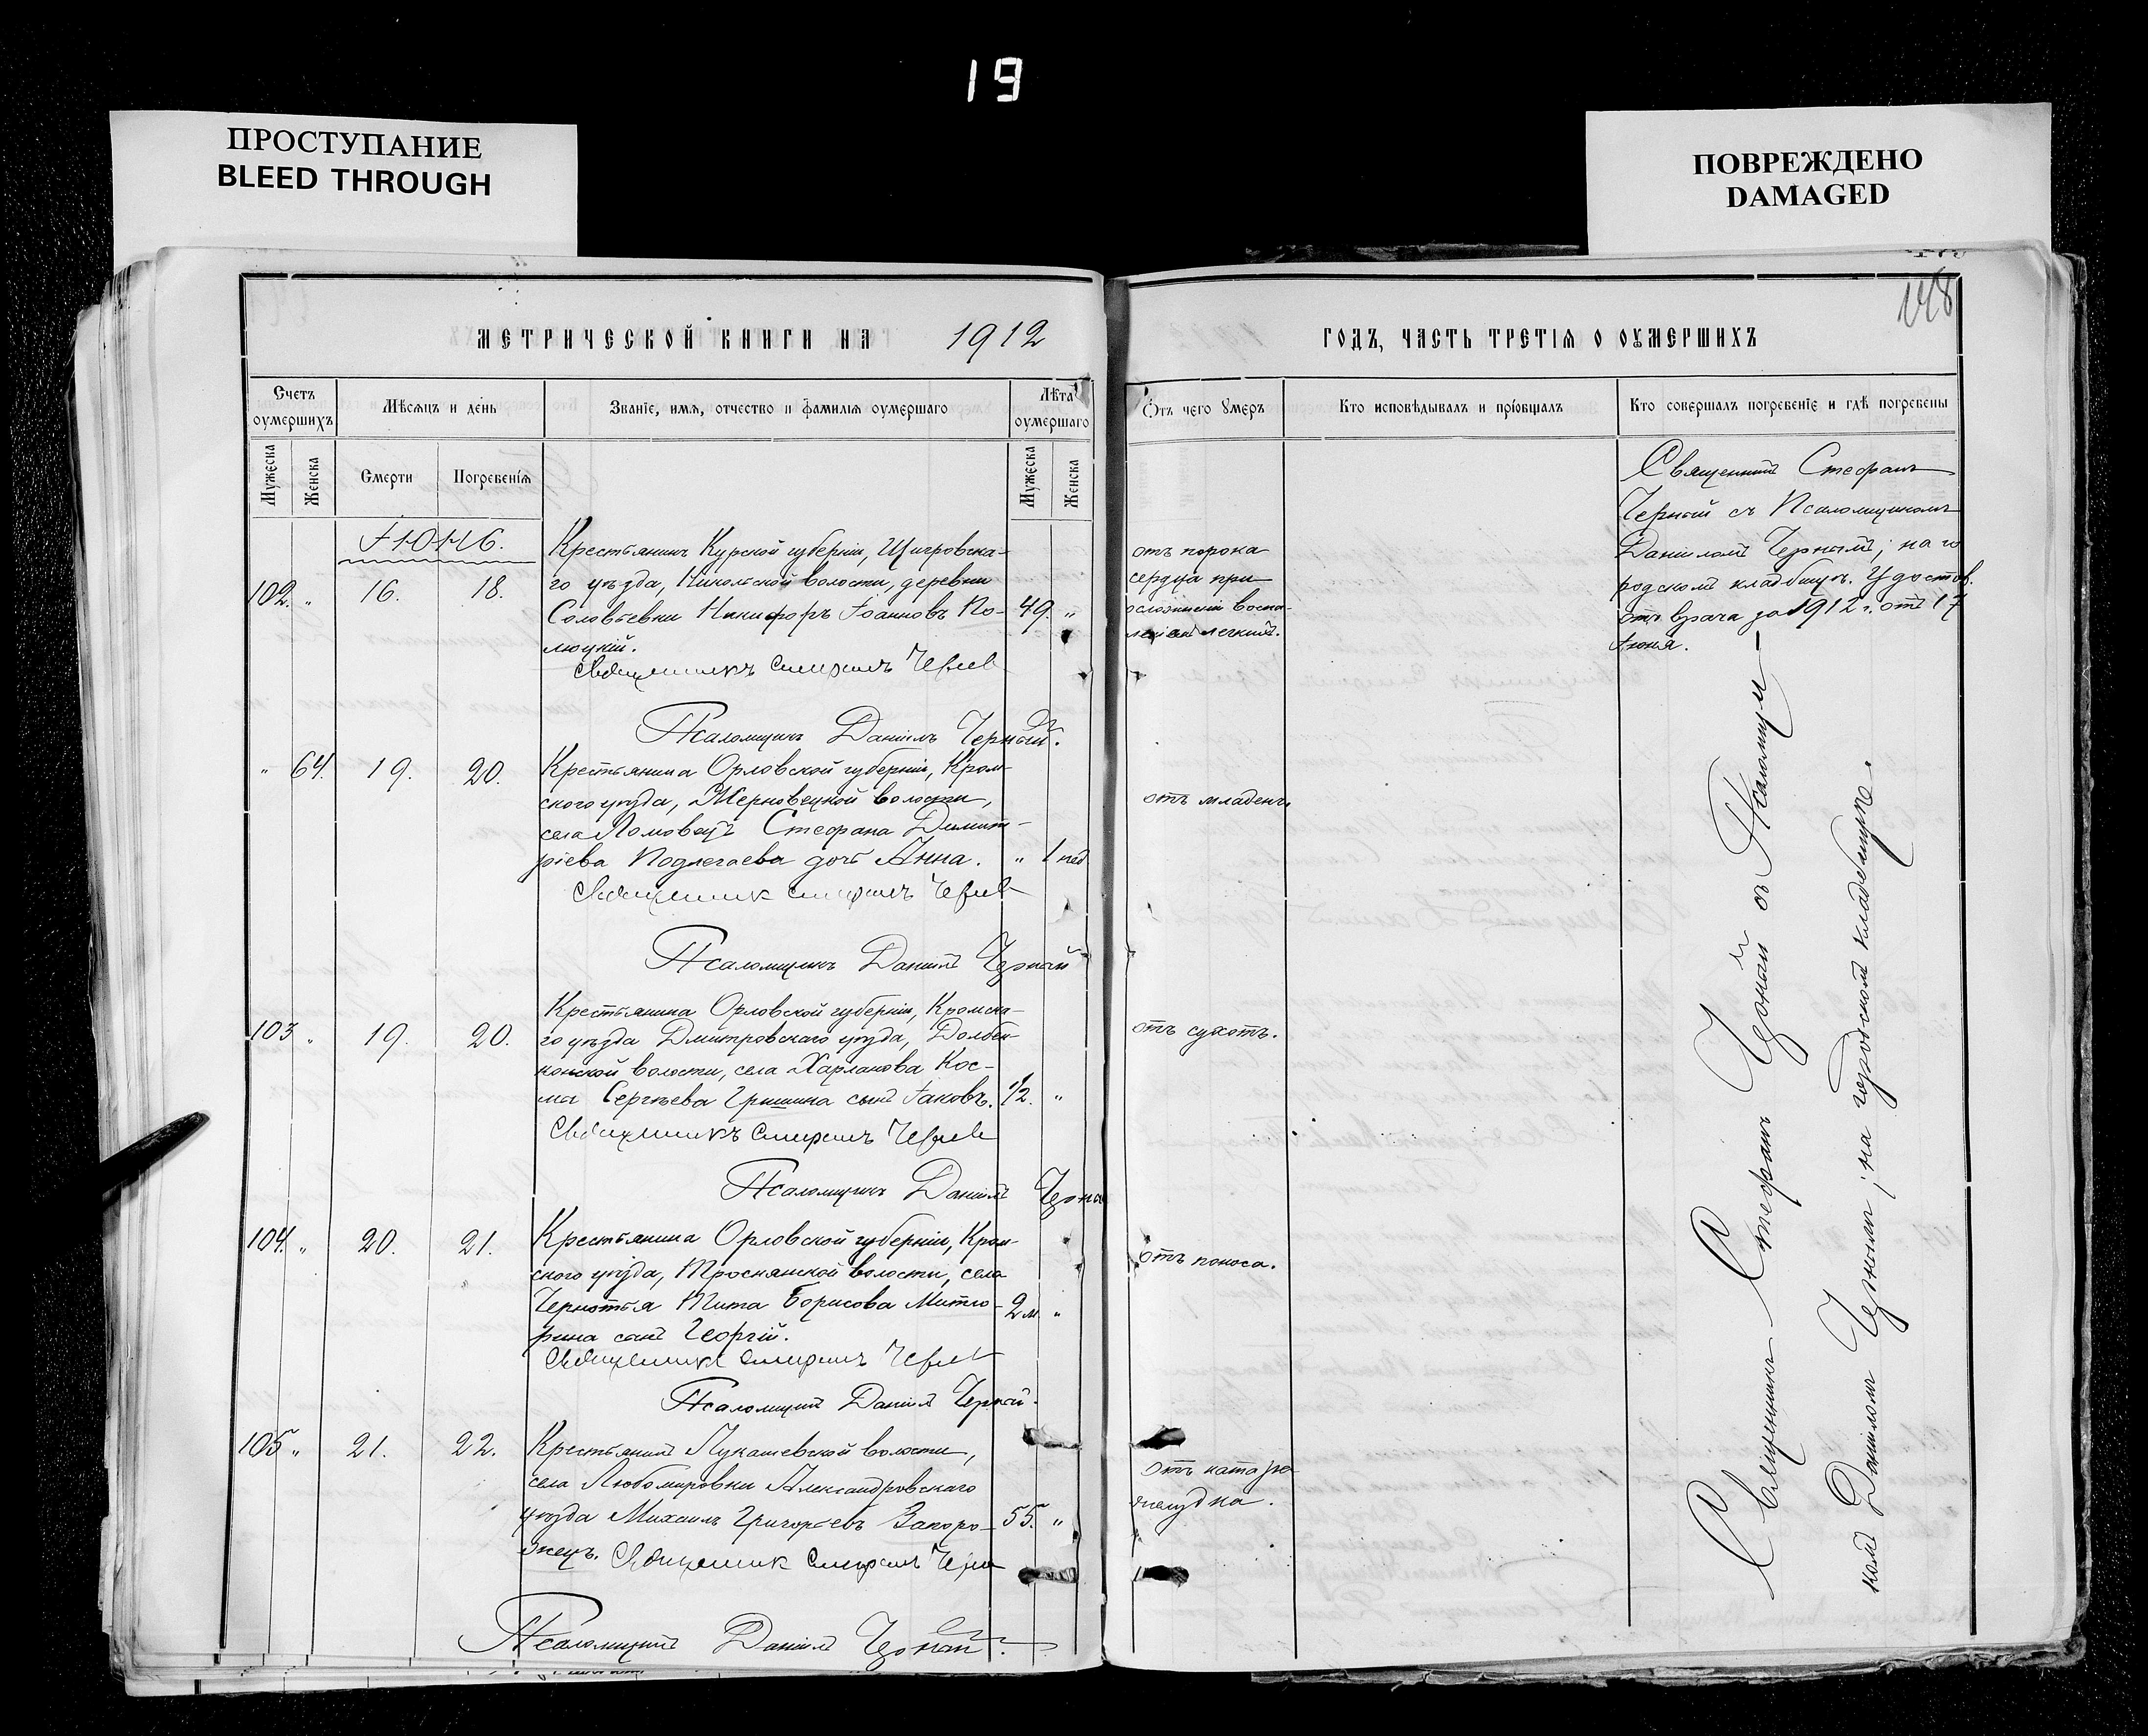 19
ПРОСТУПАНИЕ
BLEED THROUGH
ПОВРЕЖДЕНО
DAMAGED
148
МЕТРИЧЕСКОЙ КНИГИ НА 1912
ГОДЪ, ЧАСТЬ ТРЕТІЯ О ОУМЕРШИХЪ
Счетъ оумершихъ
Мѣсяцъ и день
Званіе, имя, отчество и фамилія оумершаго
Лѣта оумершаго
Отъ чего умеръ
Кто исповѣдывалъ и пріобщалъ
Кто совершалъ погребеніе и гдѣ погребены
Мужеска
Женска
Смерти
Погребенія
Мужеска
Женска
Іюнь.
102. „ 16. 18.
Крестьянинъ Курской губерніи, Щигровска-
го уѣзда, Никольской волости, деревни
Соловьевки Никифоръ Іоанновъ По- 49. „
люцкій.
отъ порока
сердца при
осложненіи воспа-
леніемъ легкихъ.
Священникъ Стефанъ
Черный съ Псаломщикомъ
Даніиломъ Чернымъ; на го
родскомъ кладбищѣ. Удостов.
отъ врача за 1912 г. отъ 17
Іюня.
Священникъ Стефанъ
Псаломщикъ Даніилъ Черный.
„ 64. 19. 20.
Крестьянина Орловской губерніи, Кром-
ского уѣзда, Жерновецкой волости,
села Ломовецъ Стефана Димит-
ріева Подлегаева дочь Анна. „ 1 нед
отъ младенч.
Священникъ Стефанъ
Псаломщикъ Даніилъ Черный
103 „ 19. 20.
Крестьянина Орловской губерніи, Кромска-
го уѣзда Дмитровскаго уѣзда, Долбен-
конской волости, села Харланова Кос-
мы Сергѣева Гришина сынъ Іаковъ. 1/2. „
отъ сухотъ.
Священникъ Стефанъ
Псаломщикъ Даніилъ
104. „ 20. 21.
Крестьянина Орловской губерніи, Кром-
ского уѣзда, Троснянской волости, села
Чернотья Тита Борисова Митю-
рина сынъ Георгій. 2 м. „
отъ поноса.
Священникъ Стефанъ
Псаломщикъ Даніилъ Черный.
105 „ 21. 22.
Крестьянинъ Лукашевской волости,
села Любомировки Александровскаго
уѣзда Михаилъ Григорьевъ Запоро- 55. „
жецъ. Священникъ Стефанъ
отъ катара
желудка.
Псаломщикъ Даніилъ Черный.
Священникъ Стефанъ Черный съ Псаломщи—
комъ Даніиломъ Чернымъ; на городскомъ кладбищѣ.